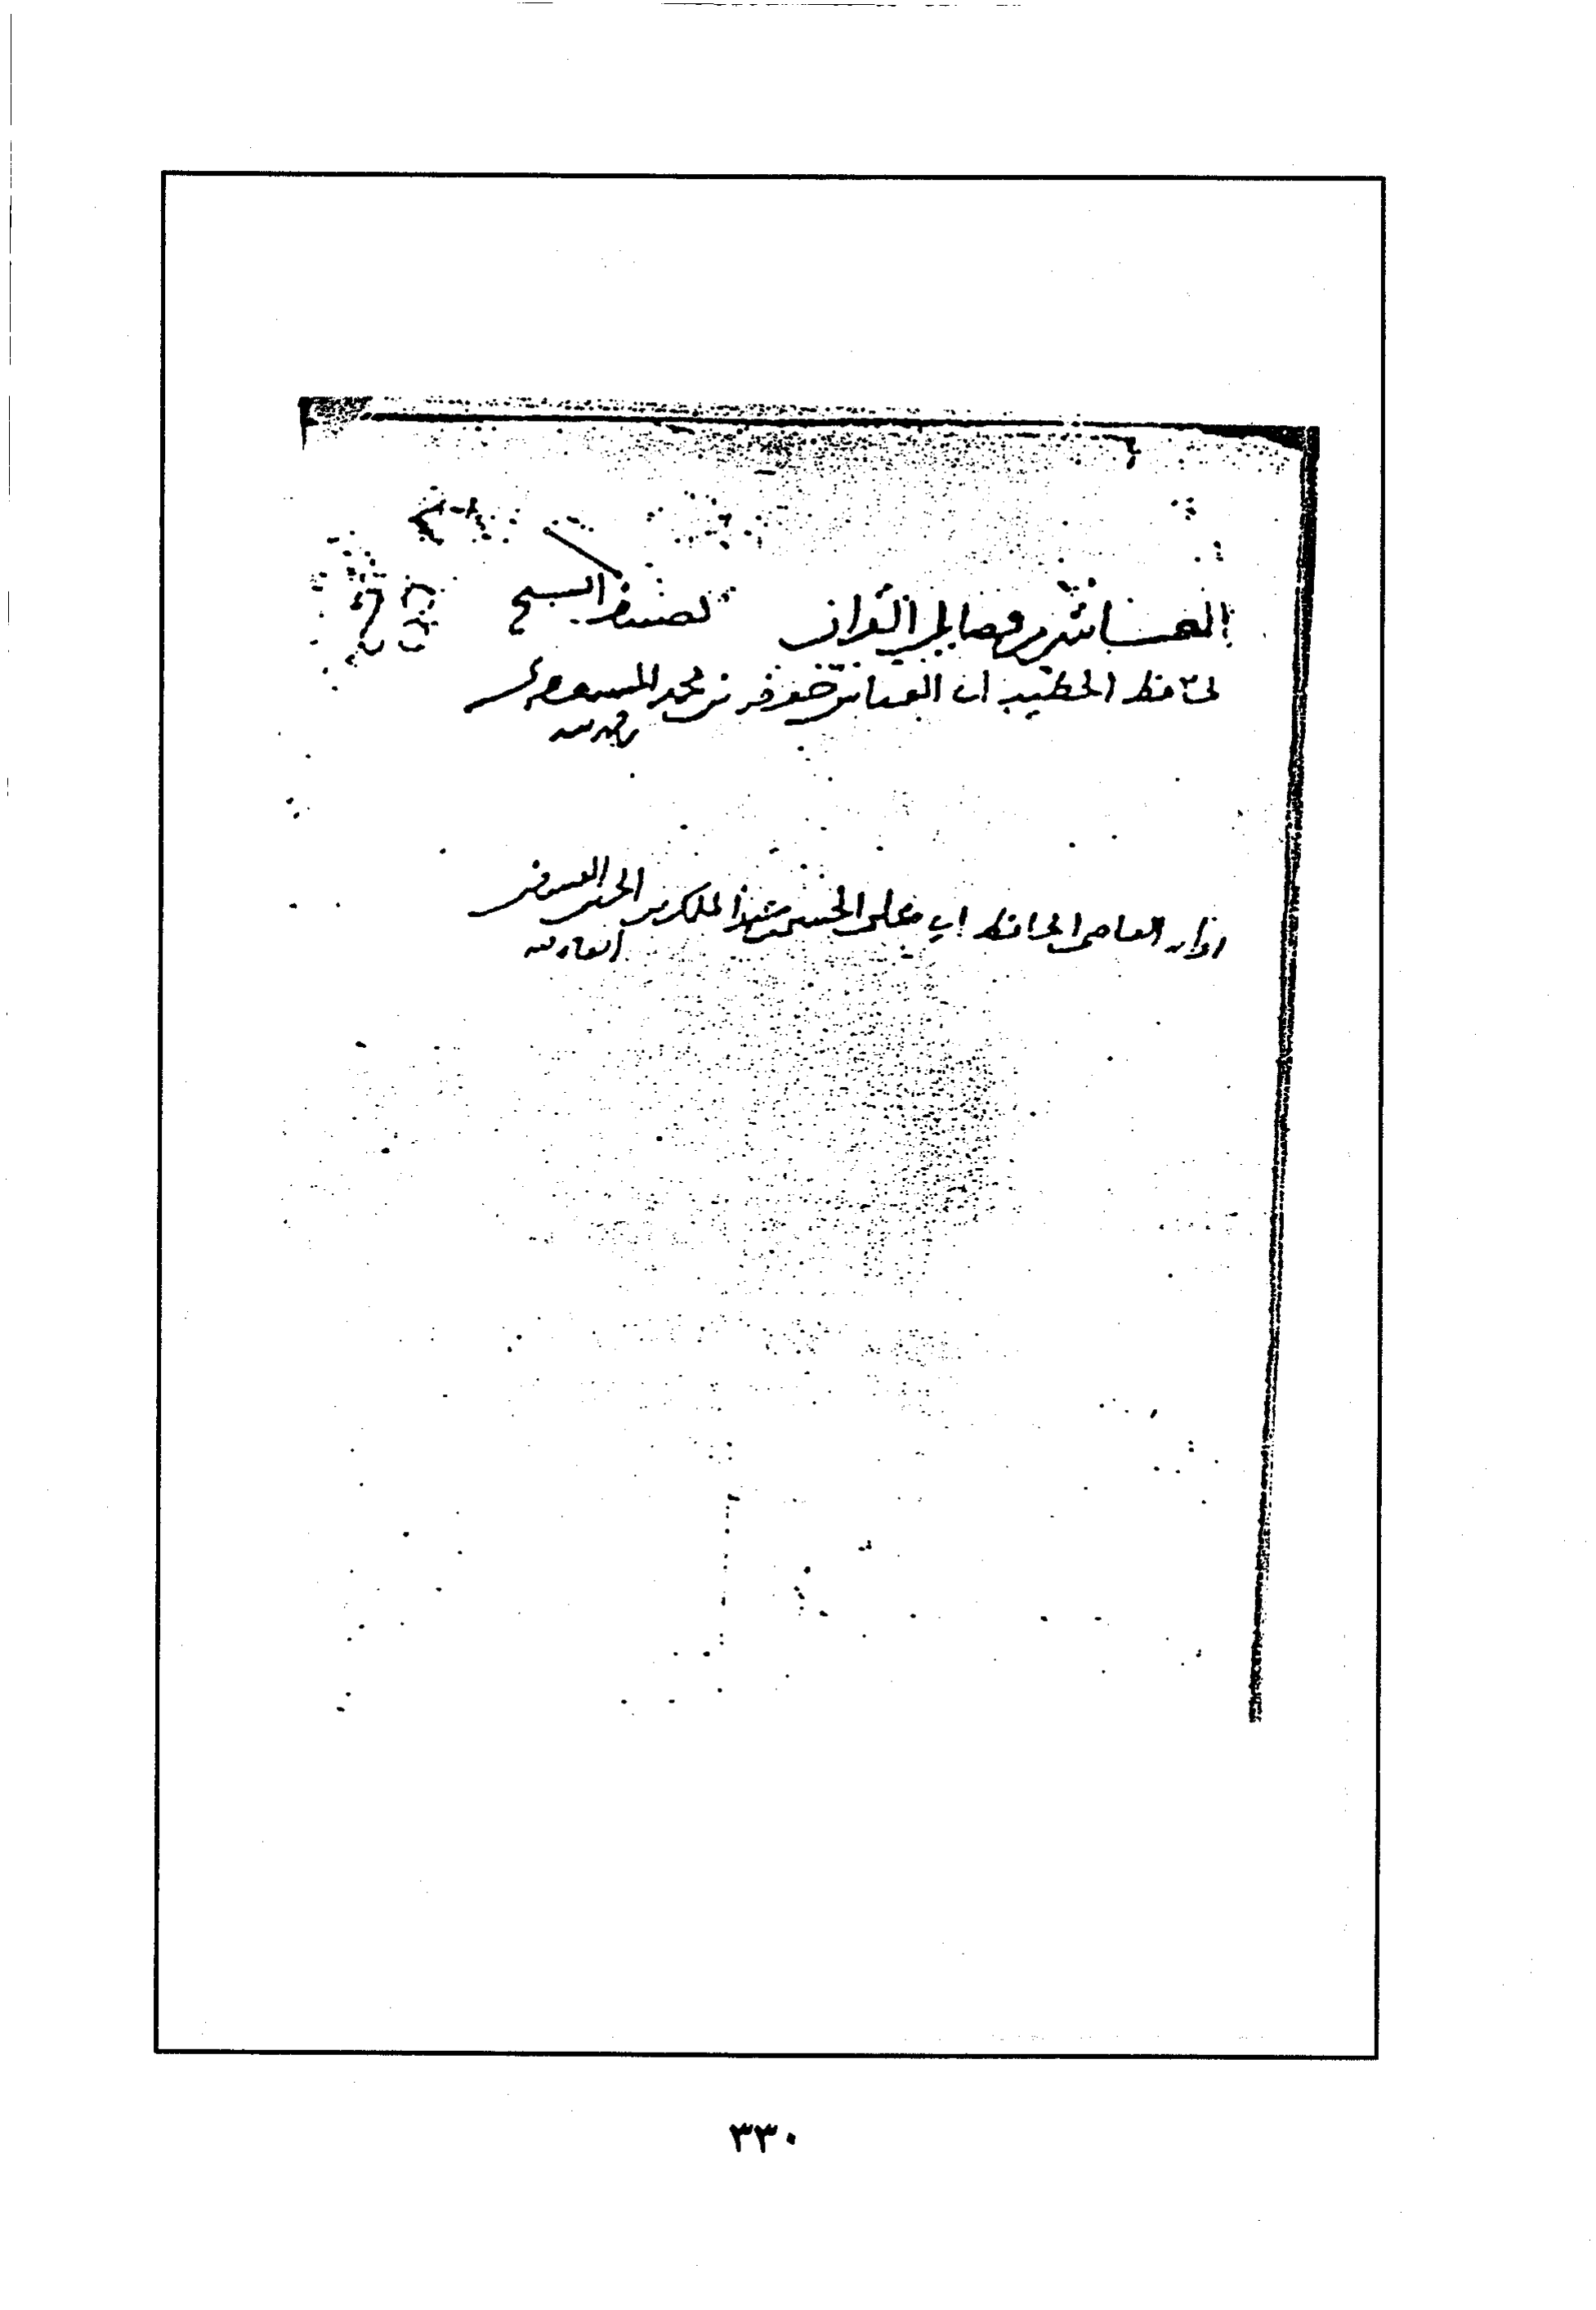 العاشر من فضائل القرآن تصنيف الشيخ
الحافظ الخطيب أبي العباس جعفر بن محمد المستغفري
رحمه الله
رواية القاضي الحافظ أبي علي الحسن بن عبد الملك بن الحسين النسفي
٣٣٠